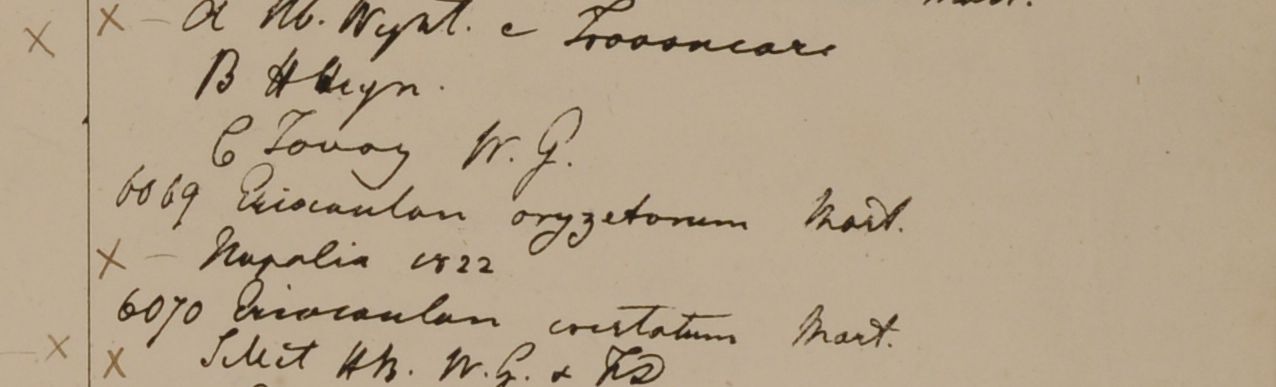 Mart.
× – a Hb. Wight. e Travancare
B H Heyn.
C Tavoy W. G.
6069 Eriocaulon oryzetorum Mart.
× – Napalia 1822
6070 Eriocaulon cristatum Mart.
× Silhet HB. W. G. & FD